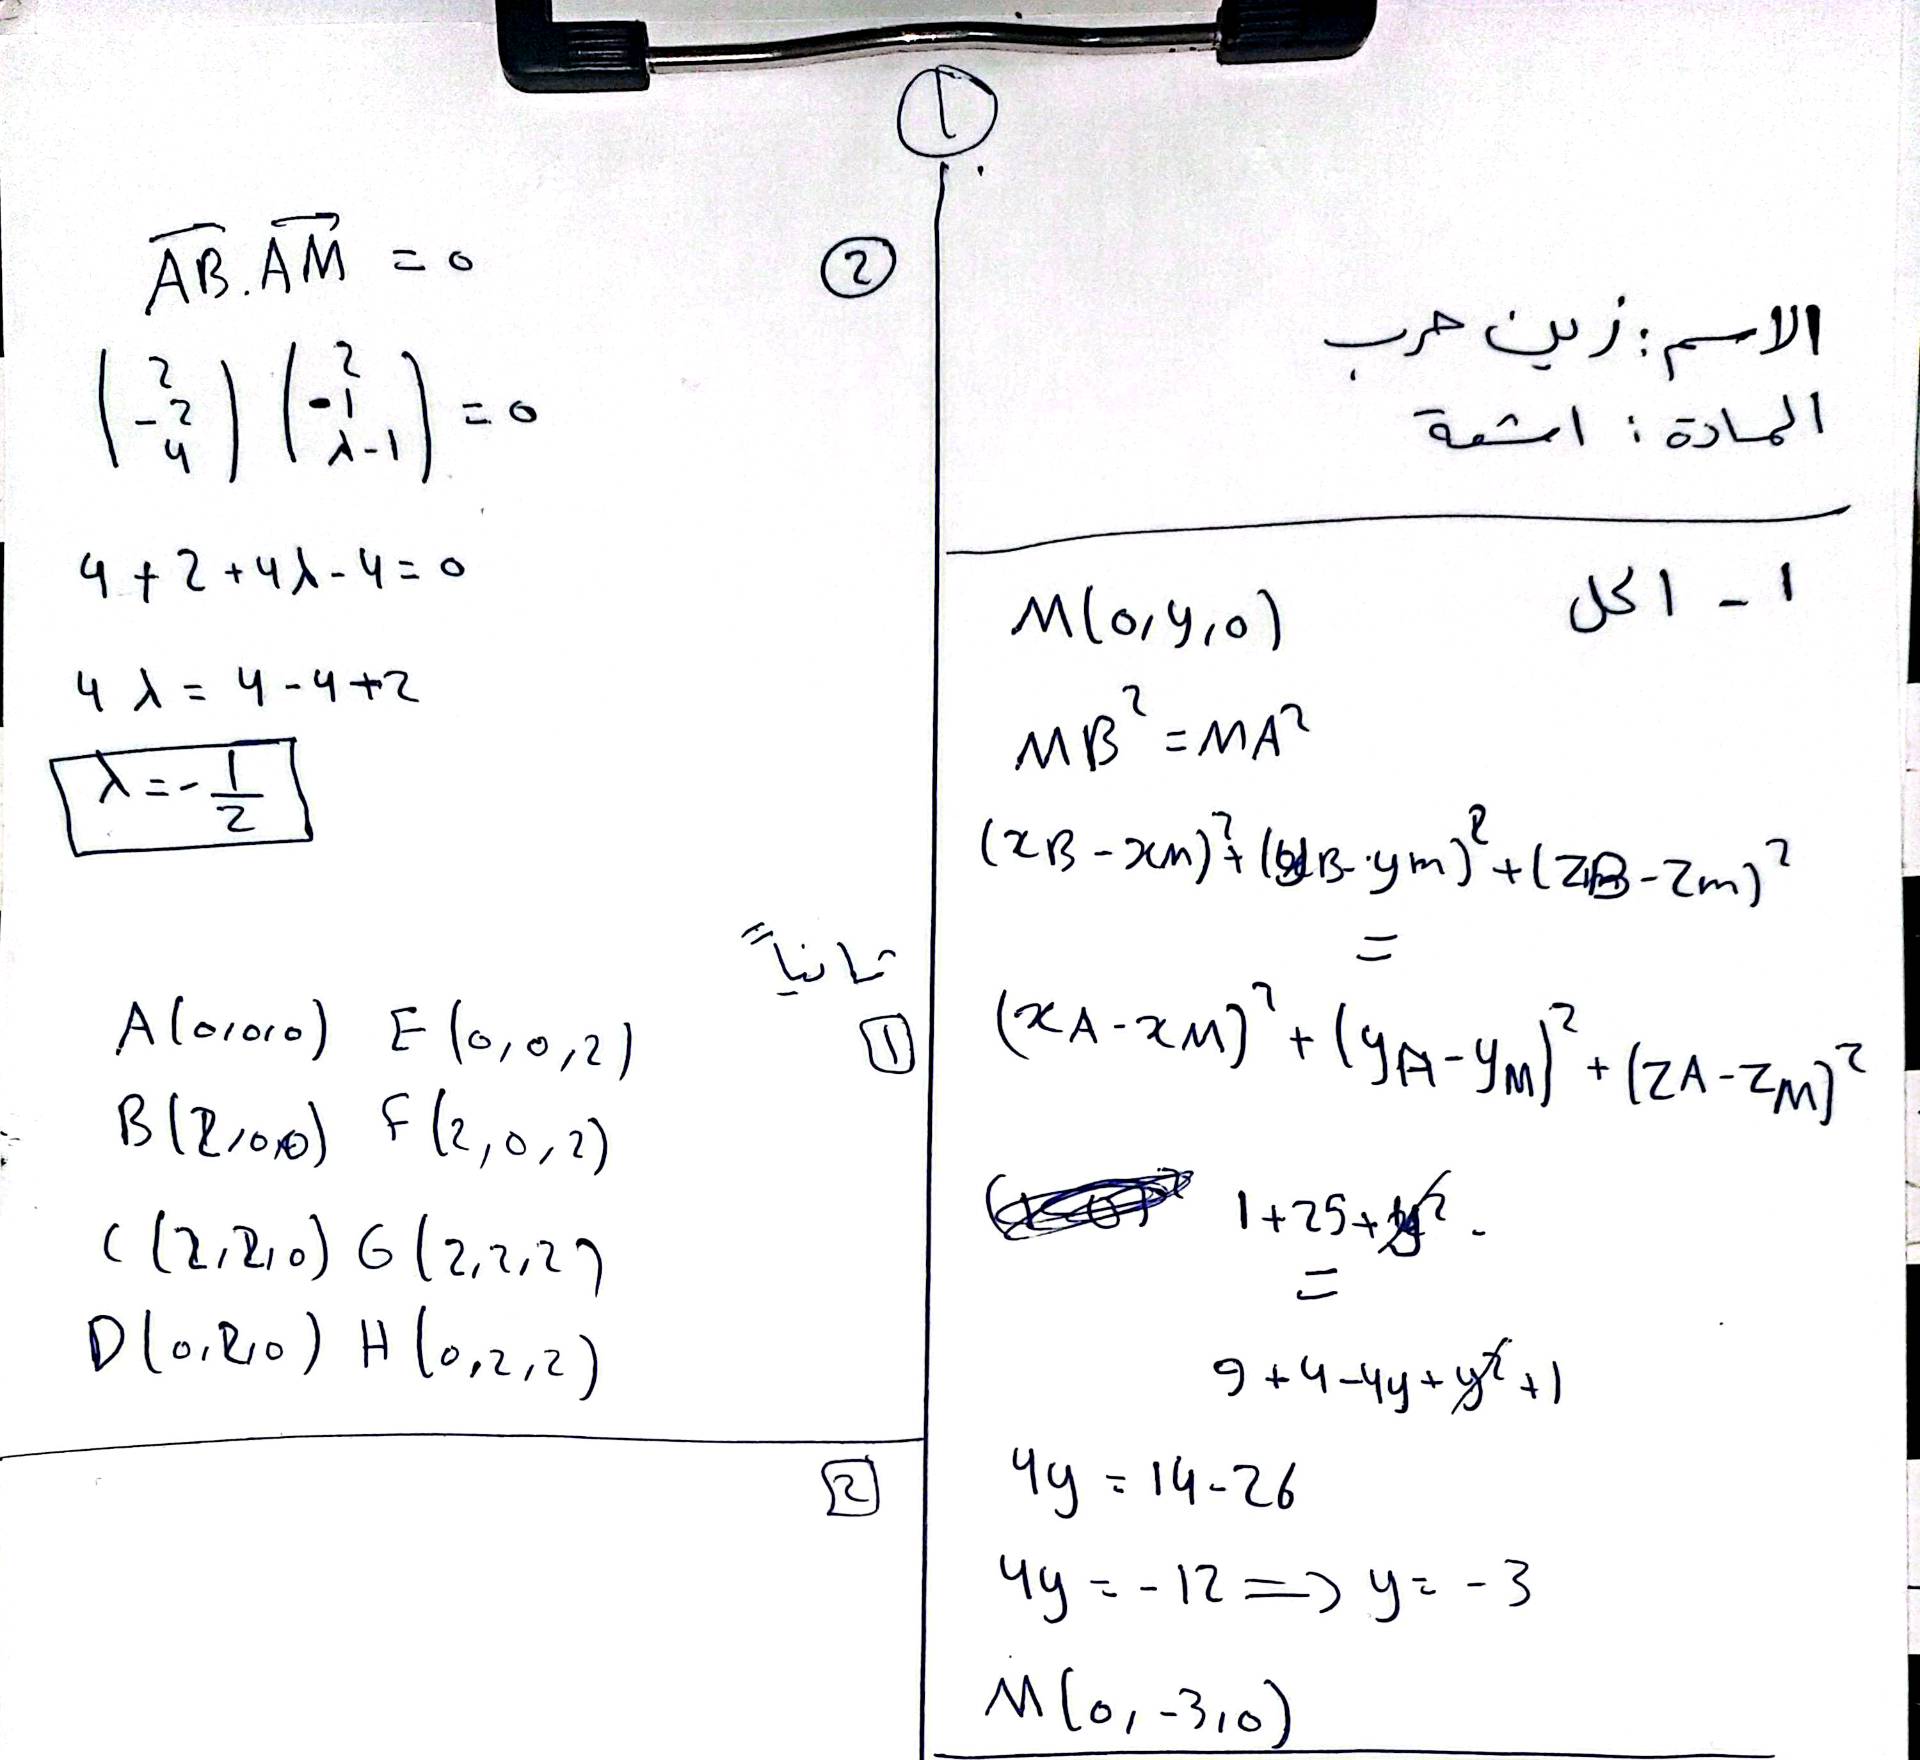 ①
الاسم: زين حرب
المادة: اشعة
1 - اكل
M(0,y,0)
MB² = MA²
(xB - xM)² + (yB - yM)² + (zB - zM)²
=
(xA - xM)² + (yA - yM)² + (zA - zM)²
1 + 25 + y²
=
9 + 4 - 4y + y² + 1
4y = 14 - 26
4y = -12 => y = -3
M(0, -3, 0)
②
AB . AM = 0
(2 -2 4) (2 -1 λ-1) = 0
4 + 2 + 4λ - 4 = 0
4λ = 4 - 4 + 2
λ = - 1/2
ثانياً
1
A(0,0,0) E(0,0,2)
B(2,0,0) F(2,0,2)
C(2,2,0) G(2,2,2)
D(0,2,0) H(0,2,2)
2